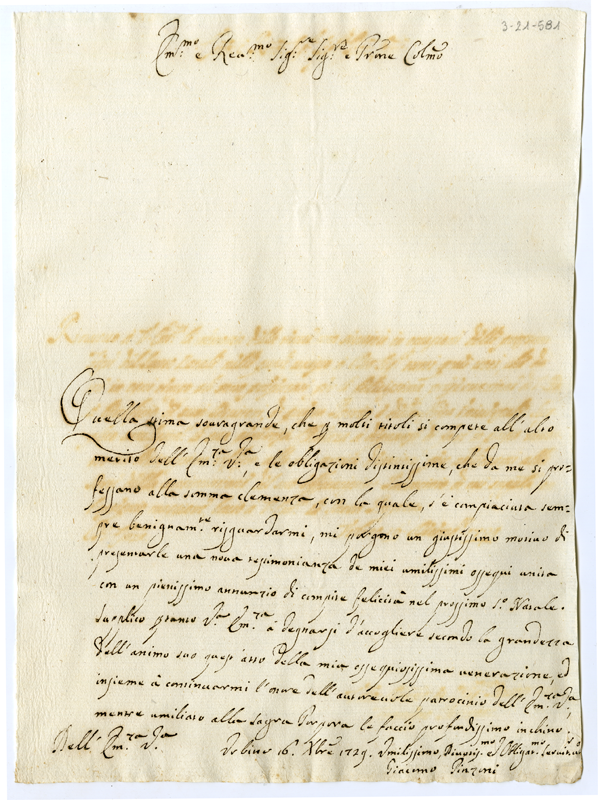 3-21-581
Em.mo e Reu.mo Sig.re Sig.re e Prone Colmo
Quella stima souragrande, che p molti titoli si compete all'alto
merito dell'Em.za V.ra, e le obligazioni distintissime, che da me si pro-
fessano alla somma clemenza, con la quale, s'è compiaciuta sem-
pre benignam.te risguardarmi, mi porgono un giustissimo motiuo di
presentarle una noua testimonianza de miei umilissimi ossequi unita
con un pienissimo annunzio di compite felicità nel prossimo S.o Natale.
Supplico ptanto V.ra Em.za à degnarsi d'accogliere secondo la grandezza
dell'animo suo quest'atto della mia ossequiosissima uenerazione, ed
insieme à continuarmi l'onore dell'autoreuole patrocinio dell'Em.za V.ra,
mentre umiliato alla sagra Porpora le faccio profondissimo inchino
Dell'Em.za V.ra
Urbino 16 Xbre 1729. Umilissimo, Diuotis.mo ed Obligat.mo
Giacomo Pinzoni